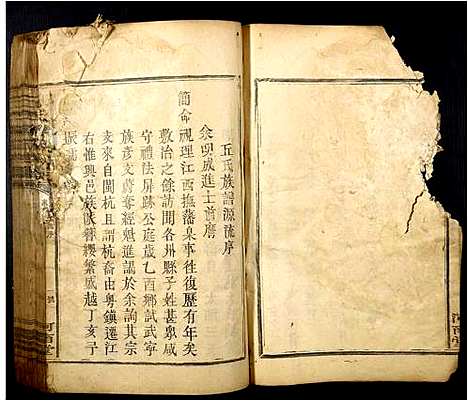 丘氏族譜源流序
余明成進士首膺
簡命視理江西撫藩臬事徃復歷有年矣
敷治之餘訪聞各州縣子姓甚㒸咸
守禮法屏跡公庭歲乙酉鄉試武寧
族彥文蔚奪經魁進謁於余詢其宗
支來自閩杭且謂杭裔由粵鎮遷江
右惟興邑族 簪纓繁盛越丁亥子
振
河南堂